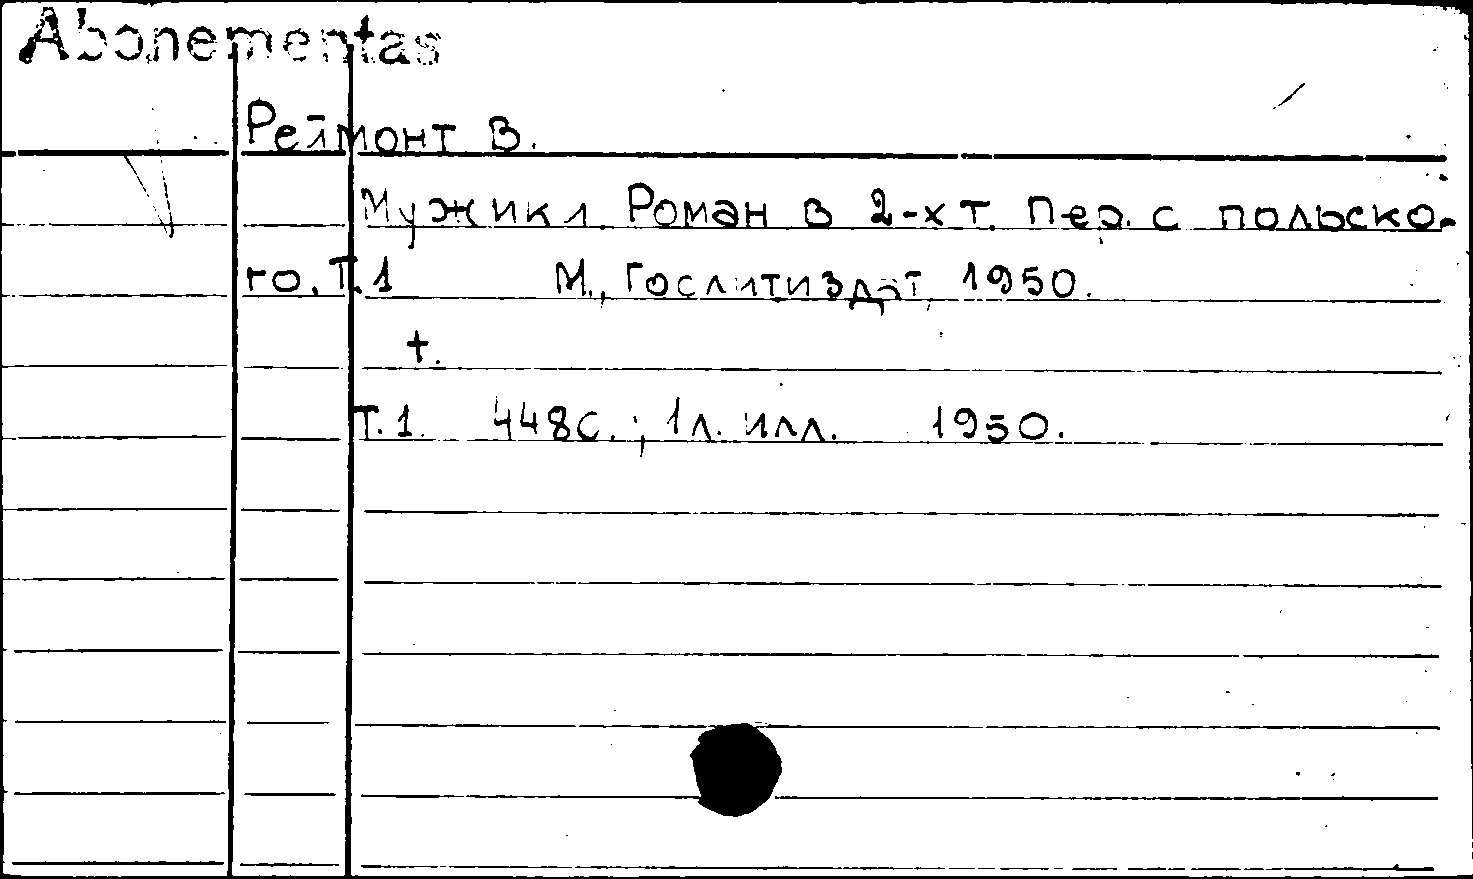 Abonementas
Реймонт В.
Мужики. Роман в 2-х т. Пер. с польско-
го. Т.1 М., Гослитиздат, 1950.
+.
Т.1. 448с.; 1л. илл. 1950.